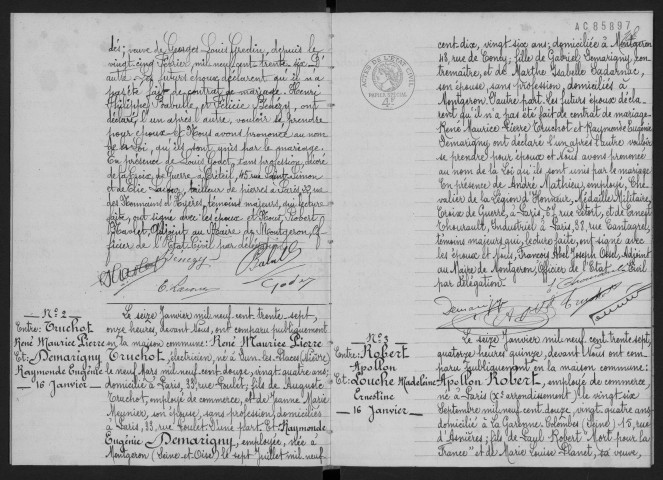 dés; veuve de Georges Louis Gredin, depuis le
vingt cinq Février mil neuf cent trente six D'
autre. Les futurs époux déclarent qu'il n'a
pas été fait de contrat de mariage. Henri
Philippe Babulle et Félicie Bénézy, ont
déclaré, l'un après l'autre, vouloir se prendre
pour époux et Nous avons prononcé au nom
de la Loi, qu'ils sont unis par le mariage.
En présence de Louis Godet, sans profession, décoré
de la Croix de Guerre à Créteil, 45 rue Saint Simon
et de Elie Lacour, tailleur de pierres à Paris, 22 rue
des Nonnains d'Hyères, témoins majeurs, qui lecture
faite, ont signé avec les époux et Nous, Robert
Adjoint au Maire de Montgeron, Of-
ficier de l'Etat Civil par délégation.
Bénézy
Godet
N° 2
Entre: Truchot
René Maurice Pierre
Et: Demarigny
Raymonde Eugénie
16 Janvier
Le seize Janvier mil neuf cent trente sept,
onze heures, devant Nous, ont comparu publiquement
en la maison commune: René Maurice Pierre
Truchot, électricien, né à (Nièvre)
le neuf Mars mil neuf cent douze, vingt quatre ans;
domicilié à Paris, 33, rue Poulet; fils de Auguste
Truchot, employé de commerce, et de Jeanne Marie
Meunier, son épouse, sans profession, domiciliés
à Paris, 33, rue Poulet. D'une part Et Raymonde
Eugénie Demarigny, employée, née à
Montgeron (Seine-et-Oise) le sept Juillet mil neuf
AC 85897
cent dix, vingt six ans; domiciliée à Montgeron
48, rue de Concy; fille de Gabriel Demarigny, con-
tremaître, et de Marthe Isabelle Cadarnac,
son épouse, sans profession, domiciliés à
Montgeron. D'autre part. Les futurs époux décla-
rent qu'il n'a pas été fait de contrat de mariage.
René Maurice Pierre Truchot et Raymonde Eugénie
Demarigny ont déclaré l'un après l'autre vouloir
se prendre pour époux et Nous avons prononcé
au nom de la Loi qu'ils sont unis par le mariage.
En présence de André Mathieu, employé, Che-
valier de la Légion d'Honneur, Médaillé Militaire,
Croix de Guerre, à Paris, 57 rue Letort, et de Ernest
Thourault, Industriel à Paris, 38, rue Cantagrel,
témoins majeurs qui, lecture faite, ont signé avec
les époux et Nous, François Abel Joseph Adjoint
au Maire de Montgeron, Officier de l'Etat Civil
par délégation.
N° 3
Entre: Robert
Apollon
Et: Louche Madeleine
Ernestine
16 Janvier
Le seize Janvier mil neuf cent trente sept,
quatorze heures quinze, devant Nous ont com-
paru publiquement en la maison commune:
Apollon Robert, employé de commerce,
né à Paris (X° arrondissement) le vingt six
Septembre mil neuf cent douze, vingt quatre ans;
domicilié à La Garenne-Colombes (Seine) 15, rue
d'Asnières; fils de Paul Robert "Mort pour la
France" et de Marie Louise Planet, sa veuve,